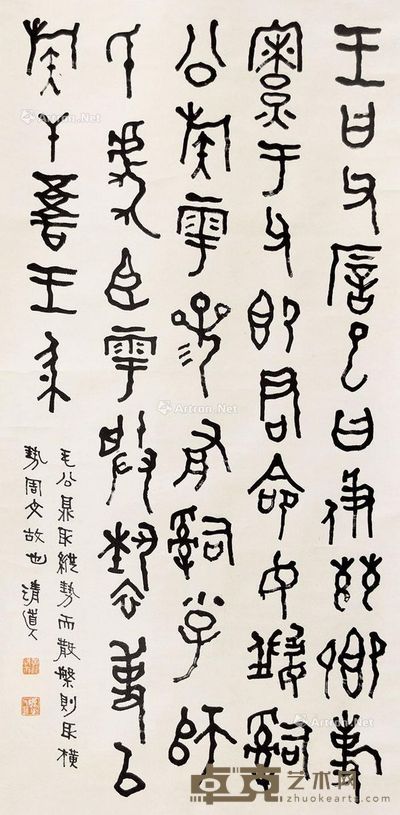 王曰父𢉩已曰彶茲卿事
寮于父即尹命女𢍰𤔲
公族雩參有𤔲小子師
氏虎臣雩朕褻事以
族干吾王身
毛公鼎取縱勢而散槃則取橫
勢周文故也清道人
Artron.Net
卓克艺术网
zhuokearts.com